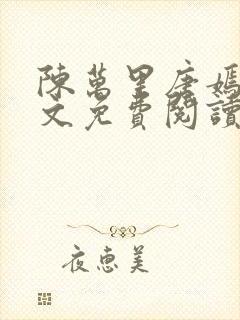 陳萬里唐嫣
文免費閱讀
夜惠美